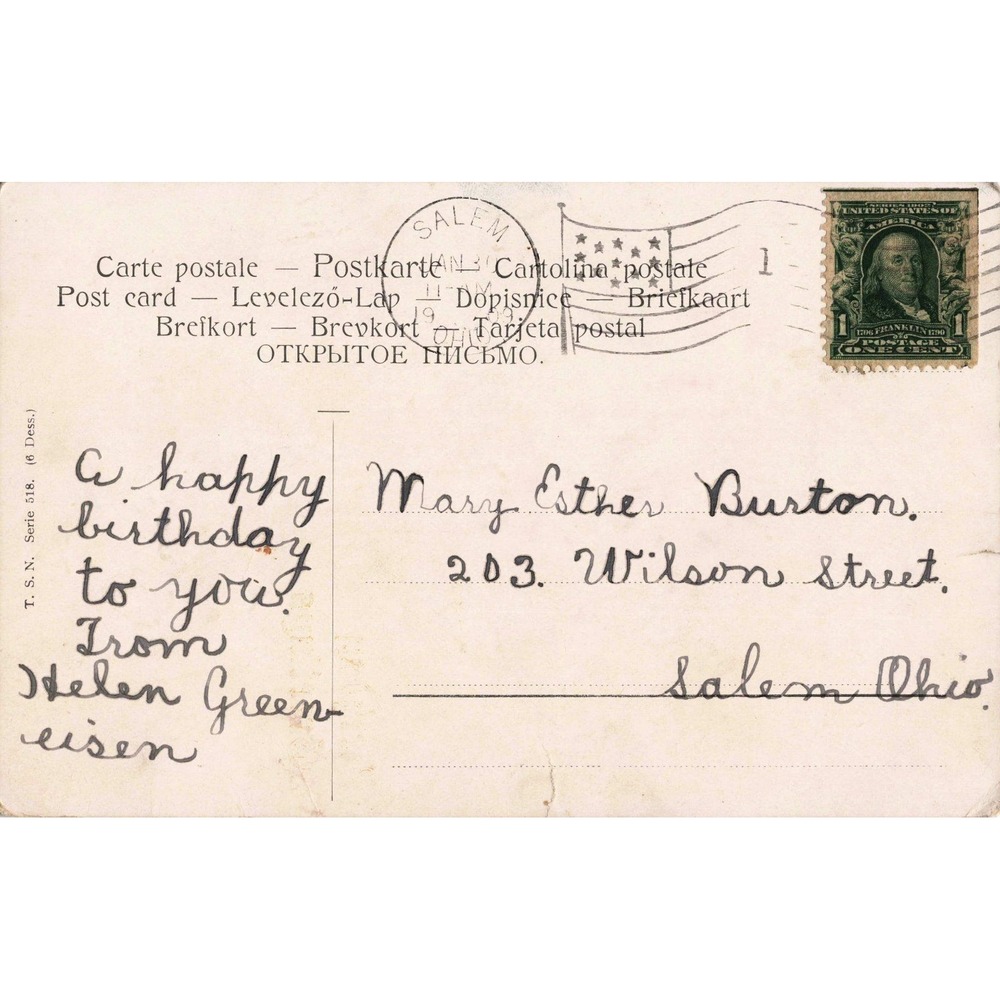 SALEM
JAN 30
11-AM
19 09
OHIO
1
SERIES 1902
UNITED STATES OF
AMERICA
1 1706 FRANKLIN 1790 1
POSTAGE
ONE CENT
Carte postale — Postkarte — Cartolina postale
Post card — Levelező-Lap — Dopisnice — Briefkaart
Brefkort — Brevkort — Tarjeta postal
ОТКРЫТОЕ ПИСЬМО.
T. S. N. Serie 518. (6 Dess.)
A happy
birthday
to you.
From
Helen Green-
eisen
Mary Esther Burton.
203. Wilson Street.
Salem Ohio.